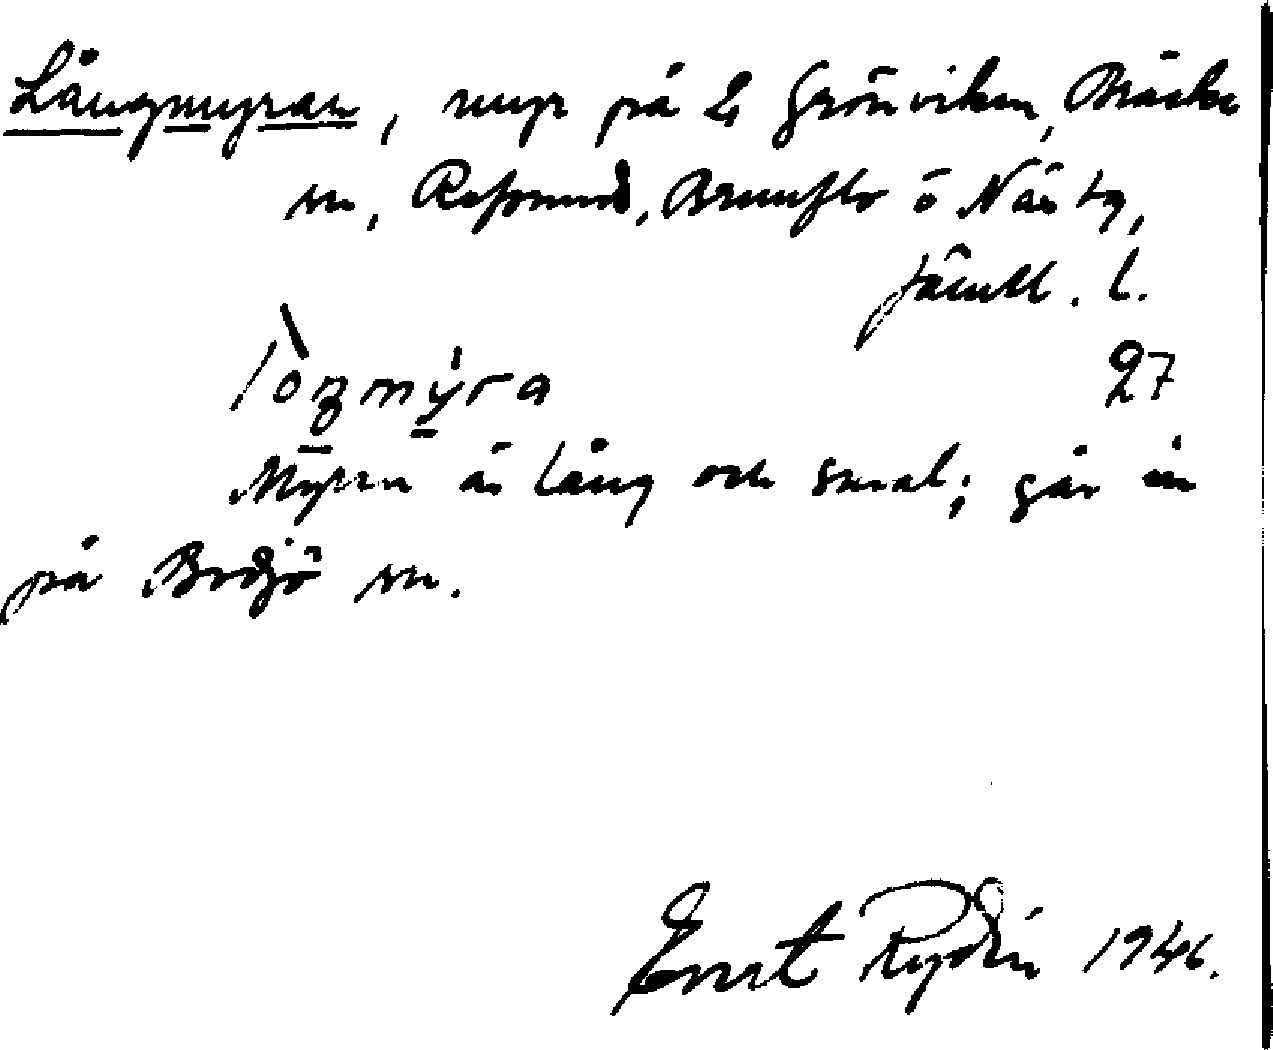 Långmyran, myr på 2 Grönviken, Bräcke
sn, Refsund, Brunflo o Näs tg,
Jämtl. l.
lòŋmy̆ra 27
Myren är lång och smal; går in
på Bodsjö sn.
Ernst Rydén 1946.